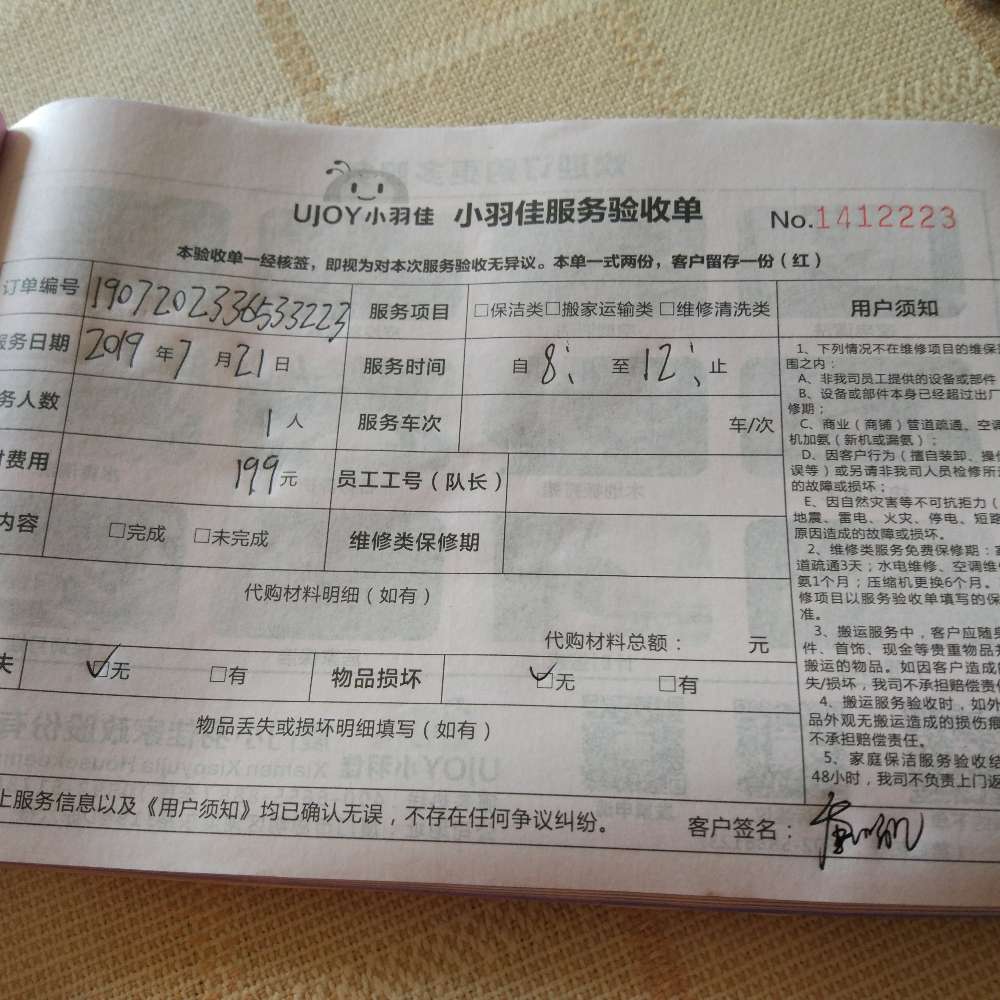 UJOY小羽佳 小羽佳服务验收单 No.1412223
本验收单一经核签，即视为对本次服务验收无异议。本单一式两份，客户留存一份（红）
订单编号 1907202336533223 服务项目 □保洁类□搬家运输类 □维修清洗类
务日期 2019年7月21日 服务时间 自8: 至12: 止
务人数 1人 服务车次 车/次
费用 199元 员工工号（队长）
内容 □完成 □未完成 维修类保修期
代购材料明细（如有）
代购材料总额： 元
失 ☑无 □有 物品损坏 ☑无 □有
物品丢失或损坏明细填写（如有）
上服务信息以及《用户须知》均已确认无误，不存在任何争议纠纷。 客户签名：
用户须知
1、下列情况不在维修项目的维保
围之内：
A、非我司员工提供的设备或部件
B、设备或部件本身已经超过出厂
修期；
C、商业（商铺）管道疏通、空调
机加氨（新机或漏氨）；
D、因客户行为（擅自装卸、操
误等）或另请非我司人员检修所
的故障或损坏；
E、因自然灾害等不可抗拒力（
地震、雷电、火灾、停电、短路
原因造成的故障或损坏。
2、维修类服务免费保修期：
道疏通3天；水电维修、空调维
氨1个月；压缩机更换6个月。
修项目以服务验收单填写的保
准。
3、搬运服务中，客户应随
件、首饰、现金等贵重物品
搬运的物品。如因客户造成
失/损坏，我司不承担赔偿责
4、搬运服务验收时，如外
品外观无搬运造成的损伤痕
不承担赔偿责任。
5、家庭保洁服务验收结
48小时，我司不负责上门返